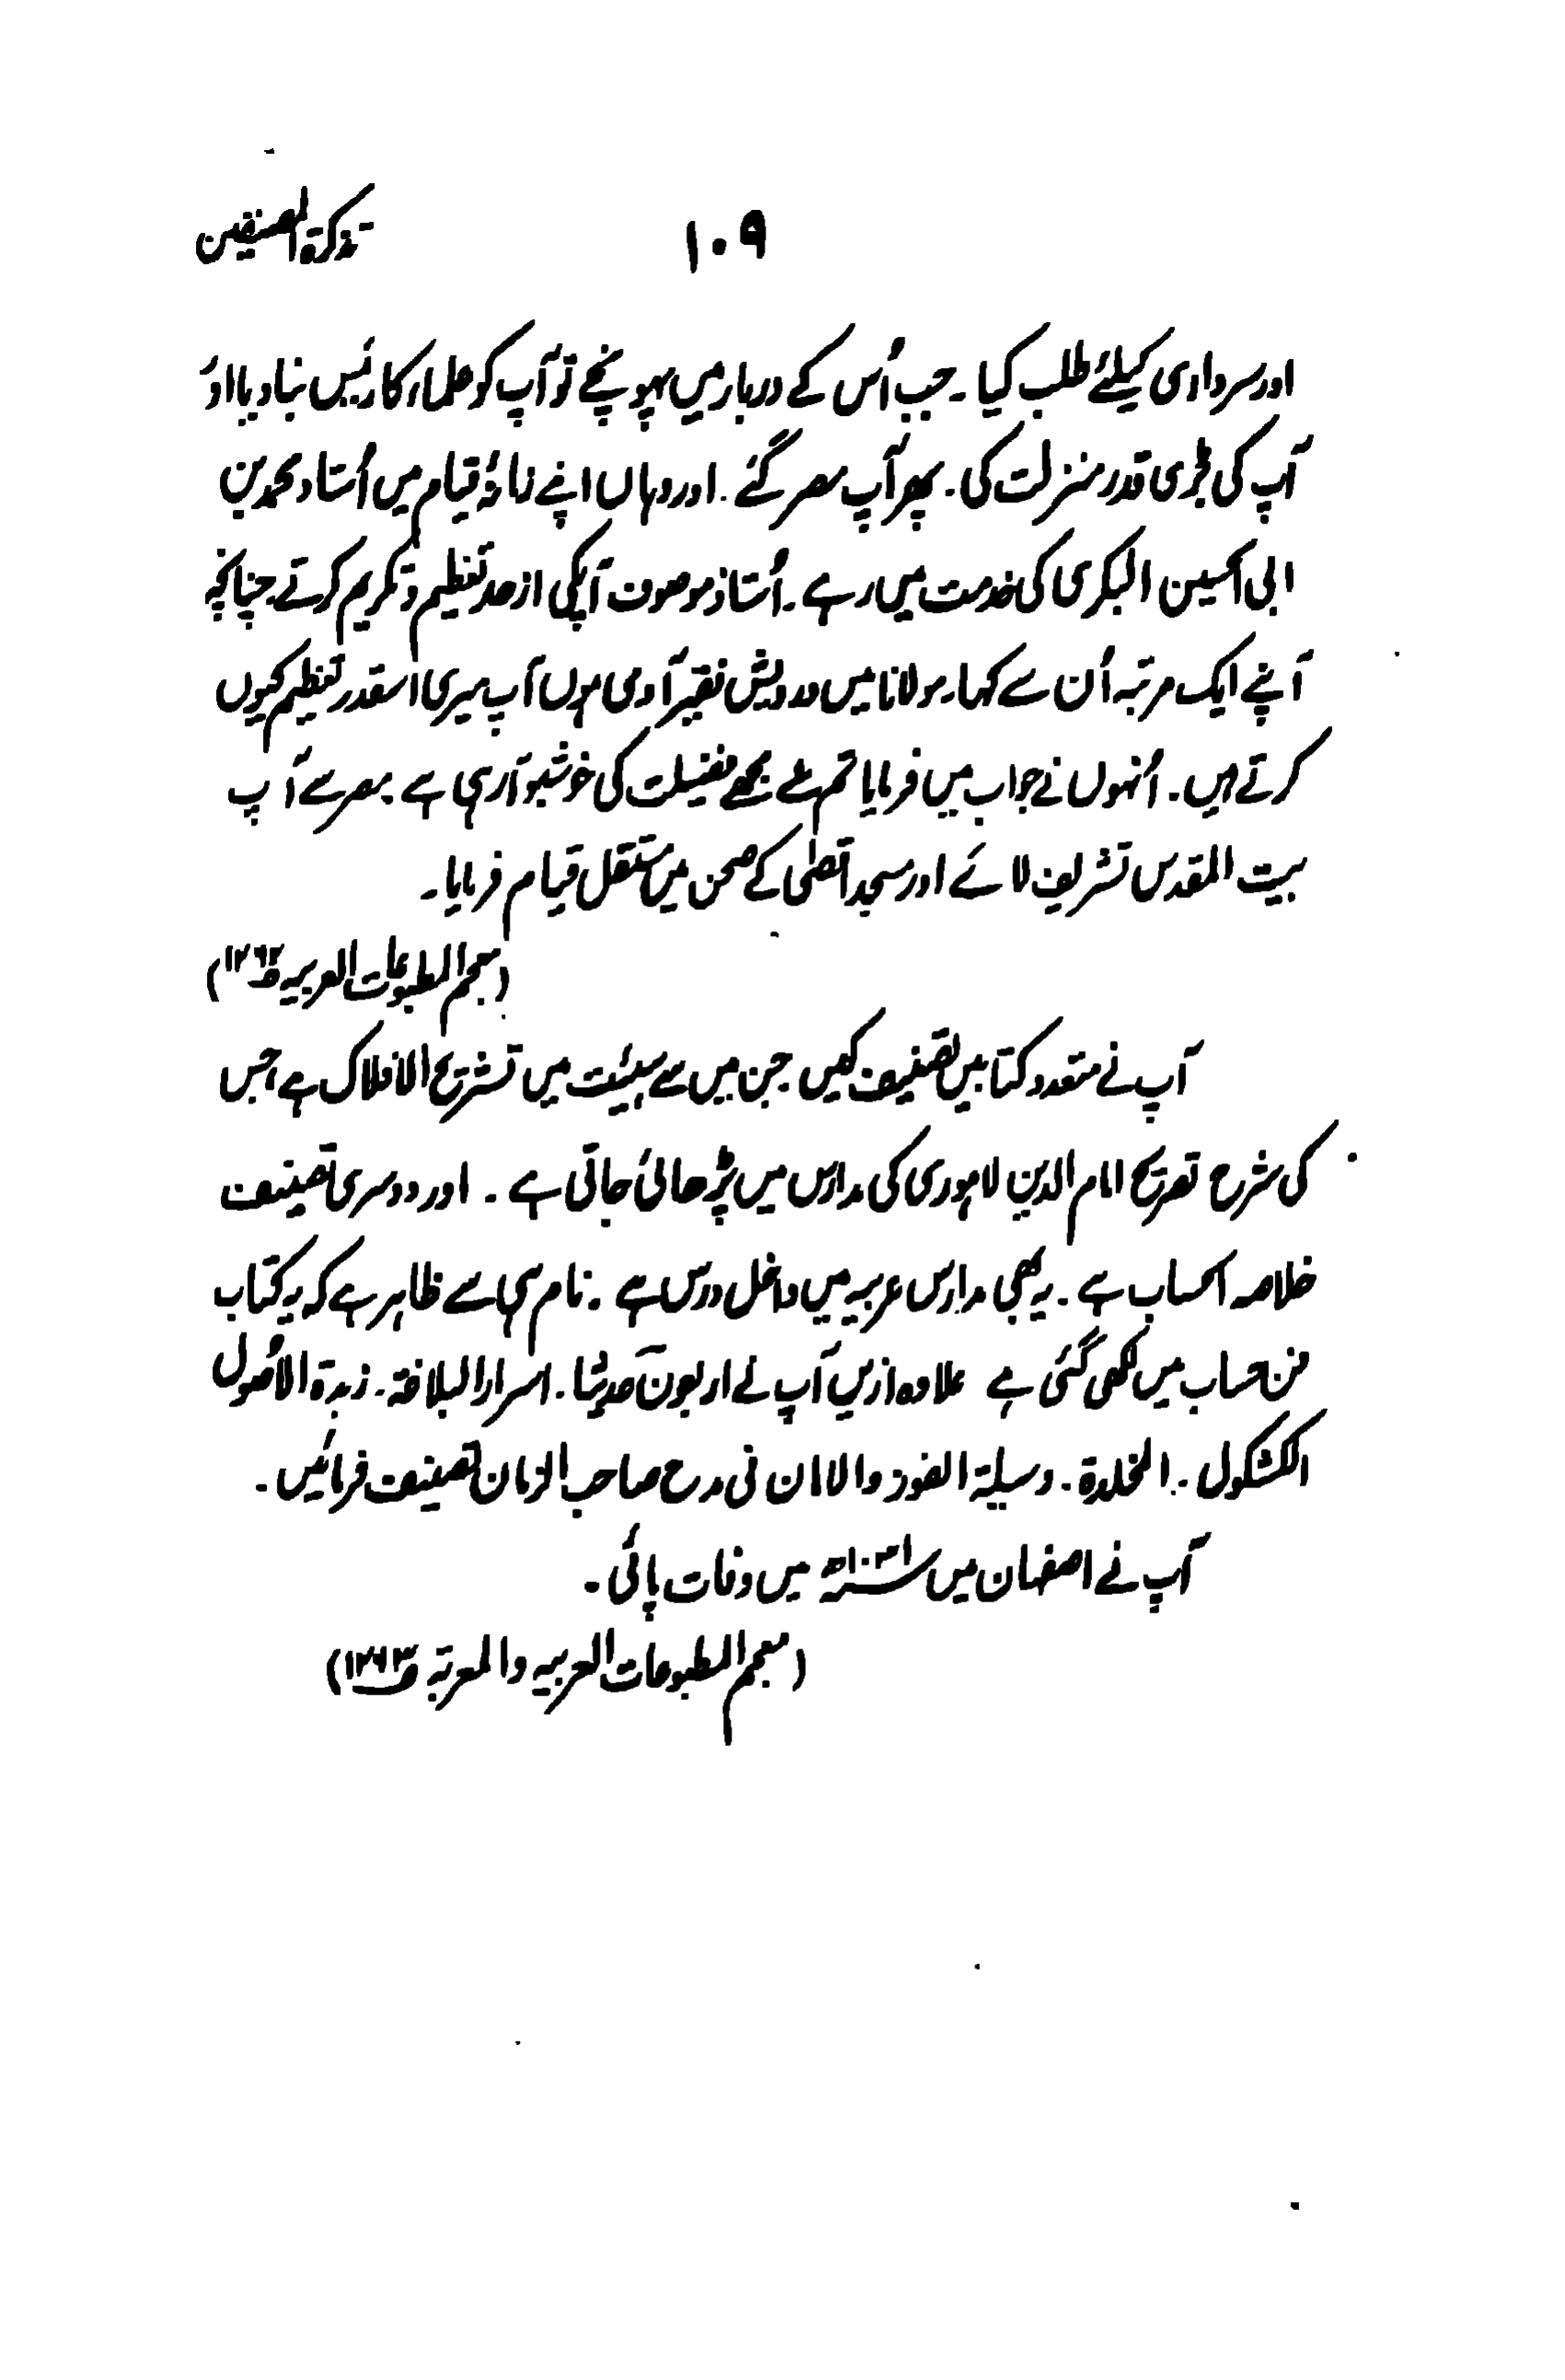 تذکرۃ المصنفین
۱۰۹
اور سرداری کیلئے طلب کیا۔ جب اُس کے دربار میں پہونچے تو آپ کو علماء کا رئیس بنا دیا اور
آپ کی بڑی قدر منزلت کی۔ پھر آپ مصر گئے۔ اور وہاں اپنے زمانۂ قیام میں اُستاد محمد بن
ابی الحسین البکری کی خدمت میں رہے۔ اُستاذ موصوف آپکی از حد تعظیم و تکریم کرتے چنانچہ
آپنے ایک مرتبہ اُن سے کہا، مولانا میں درویش فقیر آدمی ہوں آپ میری اسقدر تعظیم کیوں
کرتے ہیں۔ اُنہوں نے جواب میں فرمایا تم سے مجھے فضیلت کی خوشبو آرہی ہے۔ مصر سے آپ
بیت المقدس تشریف لائے اور مسجد اقصٰی کے صحن میں مستقل قیام فرمایا۔
(معجم المطبوعات العربیہ
آپ نے متعدد کتابیں تصنیف کیں جن میں سے ہیئت میں تشریح الافلاک ہے، جس
کی شرح تصریح امام الدین لاہوری کی مدارس میں پڑھائی جاتی ہے۔ اور دوسری تصنیف
خلاصہ الحساب ہے۔ یہ بھی مدارس عربیہ میں داخل درس ہے۔ نام ہی سے ظاہر ہے کہ یہ کتاب
فن حساب میں لکھی گئی ہے علاوہ ازیں آپ نے اربعون حدیثا۔ اسرار البلاغۃ۔ زبدۃ الاصُول
الکشکول۔ المخلدۃ۔ وسیلۃ الفوز والامان فی مدح صاحب الزمان تصنیف فرمائیں۔
آپ نے اصفہان میں میں وفات پائی۔
(معجم المطبوعات العربیہ والمعربۃ ص۱۲۶۳)